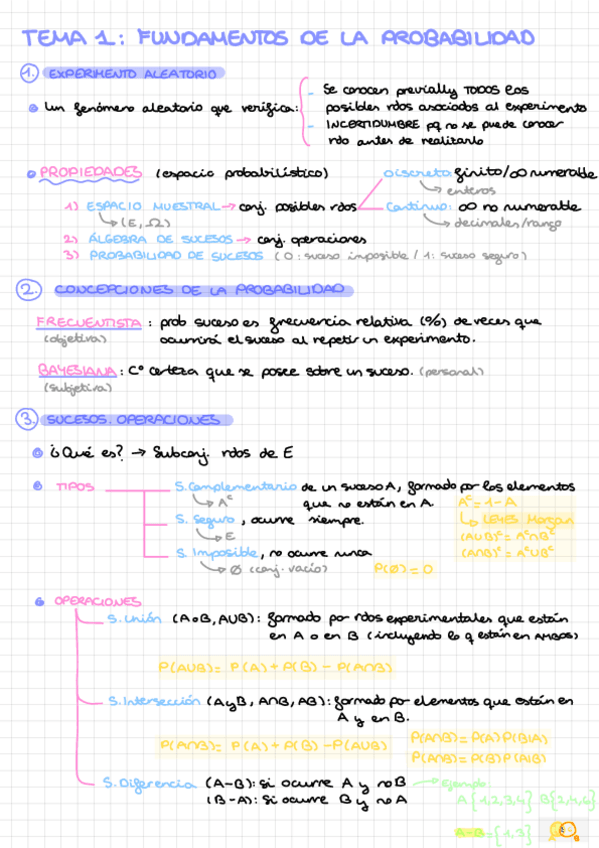 TEMA 1: FUNDAMENTOS DE LA PROBABILIDAD
1. EXPERIMENTO ALEATORIO
Un fenómeno aleatorio que verifica:
- Se conocen previally TODOS los
posibles rdos asociados al experimento
- INCERTIDUMBRE pq no se puede conocer
rdo antes de realizarlo
PROPIEDADES (espacio probabilístico)
1) ESPACIO MUESTRAL → conj. posibles rdos
(E, Ω)
Discreto: finito/∞ numerable
enteros
Continuo: ∞ no numerable
decimales/rango
2) ÁLGEBRA DE SUCESOS → conj. operaciones
3) PROBABILIDAD DE SUCESOS (0: suceso imposible / 1: suceso seguro)
2. CONCEPCIONES DE LA PROBABILIDAD
FRECUENTISTA: prob suceso es frecuencia relativa (%) de veces que
(objetiva) ocurrirá el suceso al repetir un experimento.
BAYESIANA: Cº certeza que se posee sobre un suceso. (personal)
(subjetiva)
3. SUCESOS. OPERACIONES
¿Qué es? → Subconj. rdos de E
TIPOS
S. Complementario de un suceso A, formado por los elementos
→ Aᶜ que no están en A. Aᶜ = 1 - A
S. Seguro, ocurre siempre. → LEYES Morgan
→ E (A∪B)ᶜ = Aᶜ∩Bᶜ
S. Imposible, no ocurre nunca (A∩B)ᶜ = Aᶜ∪Bᶜ
→ Ø (conj. vacío) P(Ø) = 0
OPERACIONES
S. Unión (A o B, A∪B): formado por rdos experimentales que están
en A o en B (incluyendo lo q están en AMBOS)
P(A∪B) = P(A) + P(B) - P(A∩B)
S. Intersección (A y B, A∩B, AB): formado por elementos que están en
A y en B.
P(A∩B) = P(A) + P(B) - P(A∪B)
P(A∩B) = P(A) P(B|A)
P(A∩B) = P(B) P(A|B)
S. Diferencia (A-B): si ocurre A y no B → Ejemplo
(B-A): si ocurre B y no A A{1,2,3,4} B{2,4,6}
A-B = {1,3}